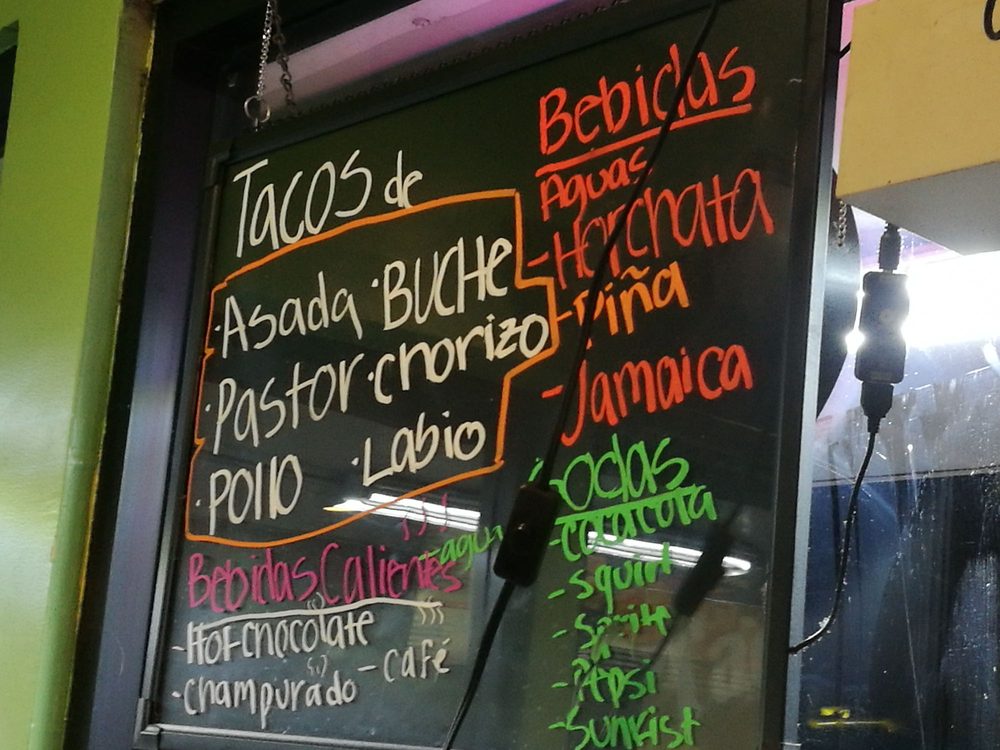 Tacos de
·Asada ·BUCHe
·Pastor ·chorizo
·Pollo ·Labio
Bebidas Calientes
-Hot chocolate
-café
-champurado
Bebidas
Aguas
-Horchata
-Piña
-Jamaica
Sodas
-cocacola
-agua
-squirt
-Sprite
-Pepsi
-Sunkist